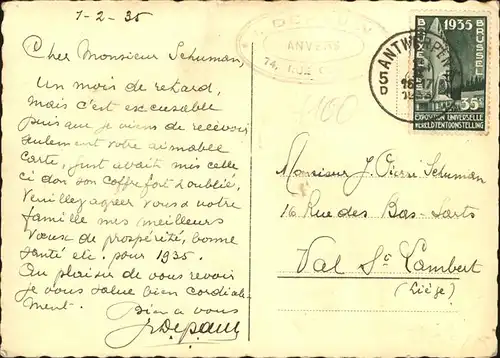 1-2-35
Cher Monsieur Schuman,
Un mois de retard,
mais c'est excusable
puis que je viens de recevoir
seulement votre aimable
carte, fint avait mis celle
ci dan son coffre fort & oublié,
Veuillez agreer vous & votre
famille mes meilleurs
Vœux de prospérité, bonne
santé etc. pour 1935.
Au plaisir de vous revoir
je vous salue bien cordiale
ment.
Bien a vous
J. Depauw
ANVERS
74,
1100
ANTWERPEN
5
D
16-17
1935
BRUXELLES
BRUSSEL
35c
EXPOSITION UNIVERSELLE
WERELDTENTOONSTELLING
Monsieur J. Pierre Schuman
16 Rue des Bas-Sarts
Val St Lambert
(Liége)